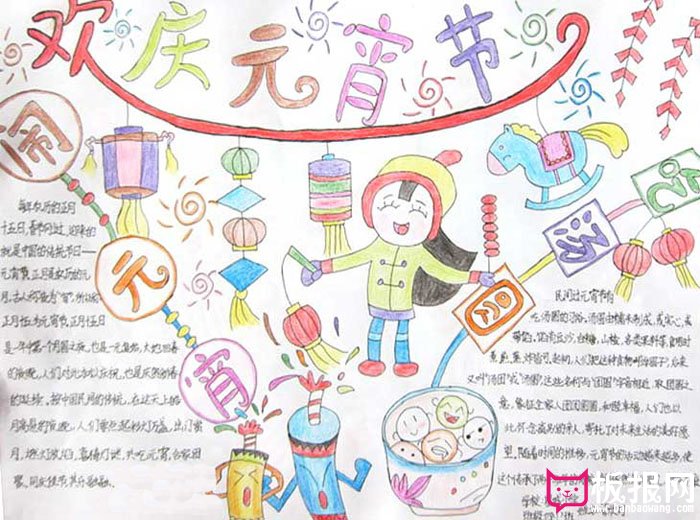 欢庆元宵节
闹
元
宵
每年农历的正月
十五日，春节刚过，迎来的
就是中国的传统节日——
元宵节。正月是农历的元
正月十五为元宵节。正月十五日
是一年中第一个月圆之夜，也是一元复始，大地回春
的夜晚，人们对此加以庆祝，也是庆贺新春
的延续。按中国民间的传统，在这天上皓
月高悬的夜晚，人们要点起彩灯万盏，出门赏
月、燃灯放焰、喜猜灯谜、共吃元宵，合家团
聚、同庆佳节，其乐融融。
民间过元宵节有
吃汤圆的习俗。汤圆由糯米制成，或实心，或
带馅。馅有豆沙、白糖、山楂、各类果料等，食用时
煮、煎、蒸、炸皆可。起初，人们把这种食物叫
又叫“汤团”或“汤圆”，这些名称与“团圆”字音相近，取团圆之
意，象征全家人团团圆圆，和睦幸福，人们也以
此怀念离别的亲人，寄托了对未来生活的美好愿
望。随着时间的推移，元宵节的活动越来越多，使
这个传统
学校
班级
板报网
www.banbaowang.com